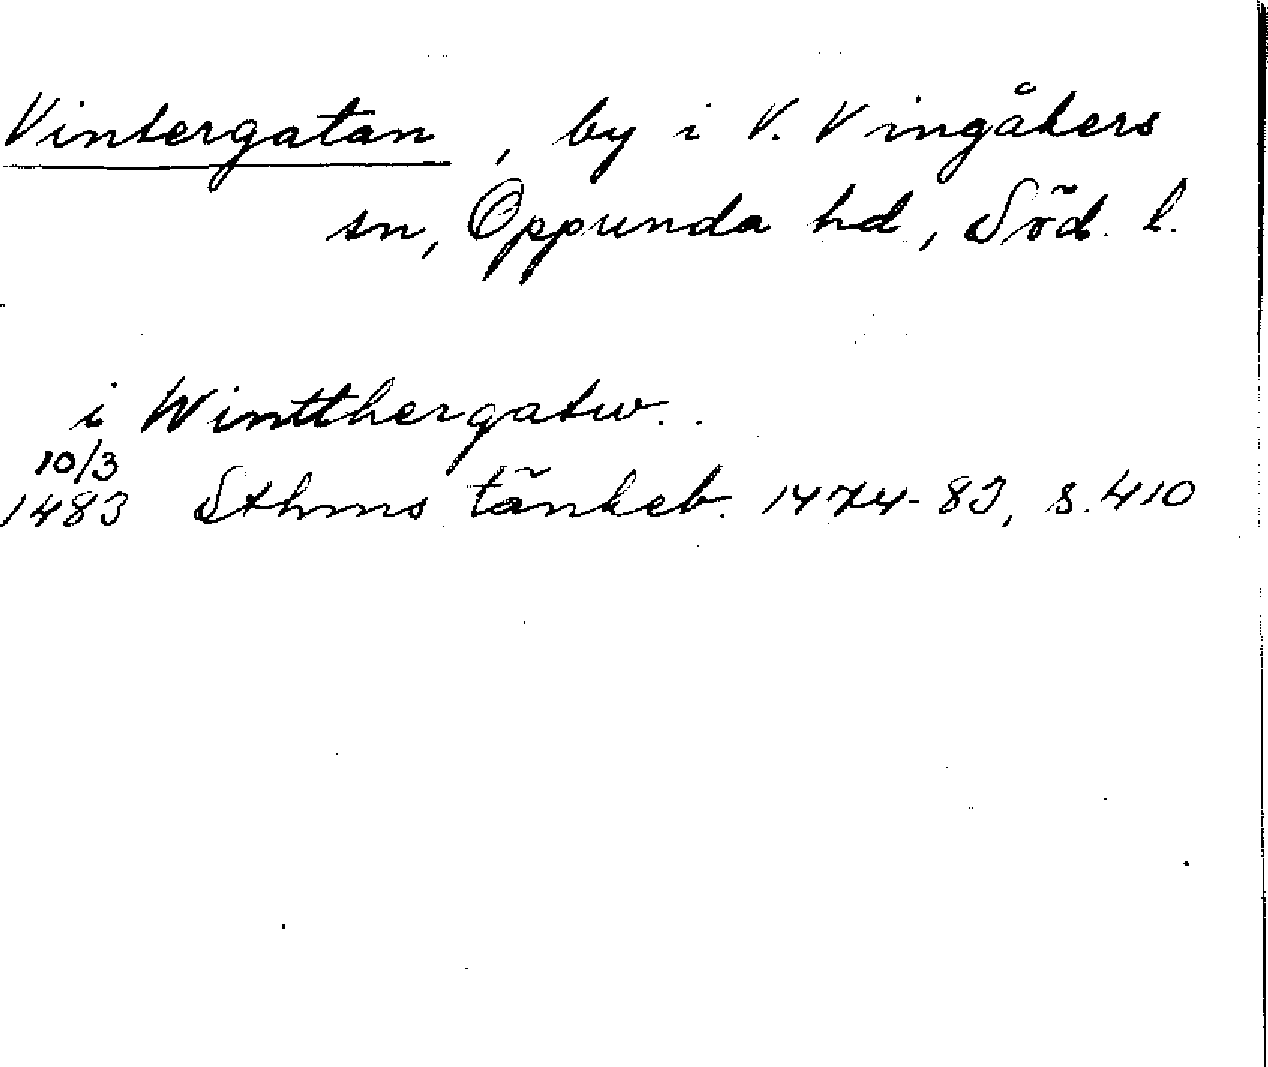 Vintergatan, by i V. Vingåkers
sn, Oppunda hd, Söd. l.
i Wintthergatw..
10/3
1483 Sthms tänkeb. 1474-83, s. 410